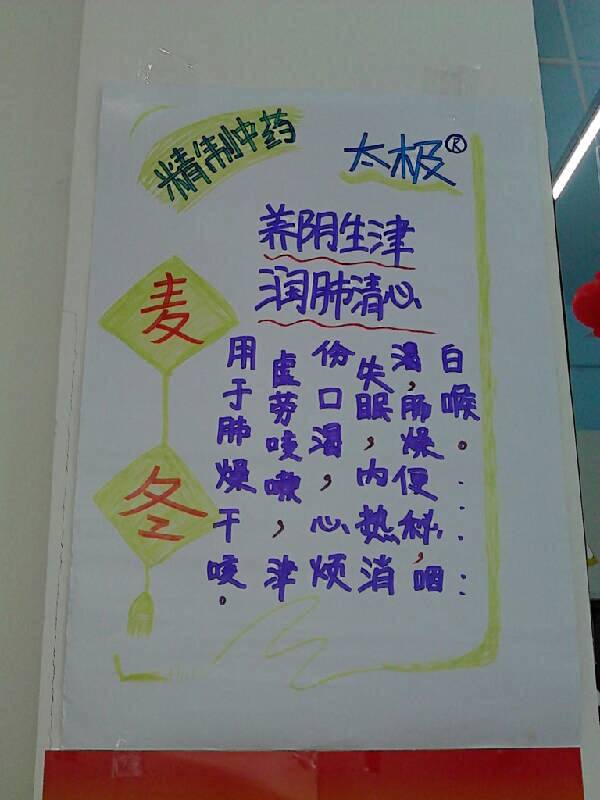 精制中药
太极®
养阴生津
润肺清心
麦冬
用于肺燥干咳。
虚劳咳嗽,津
份口渴,心烦
失眠,内热消
渴,肠燥便秘,咽
白喉。......